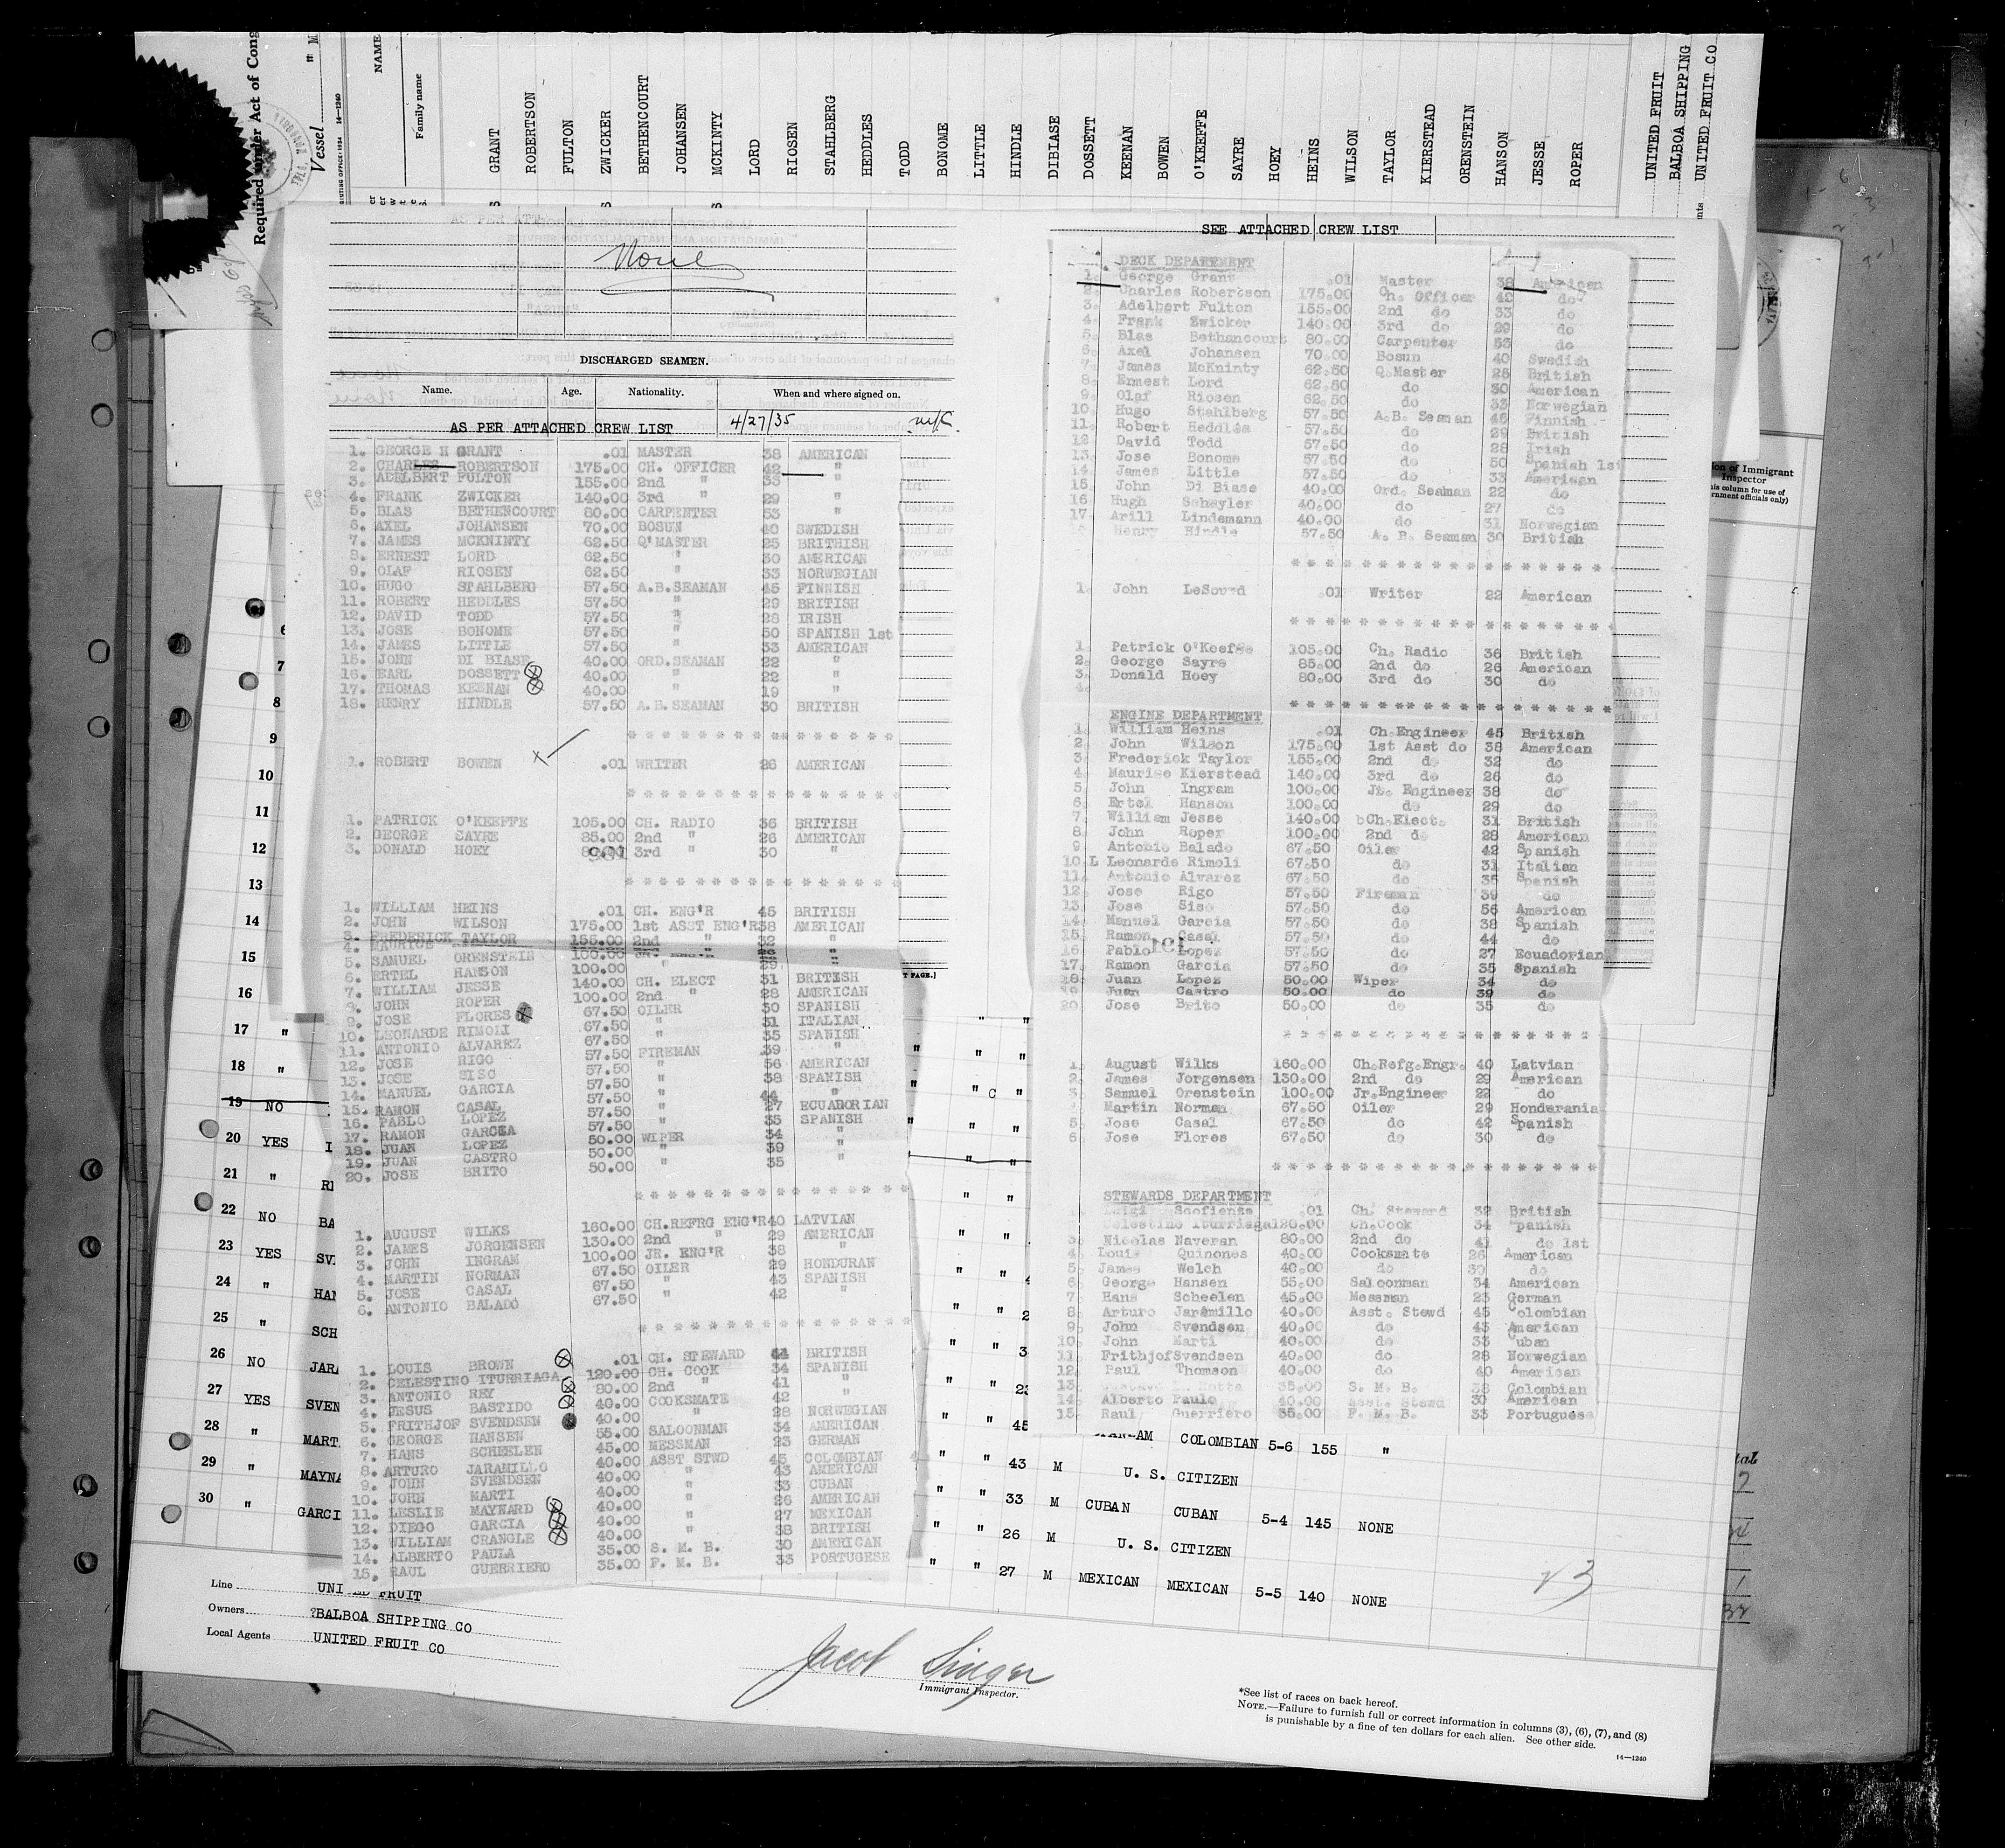 Required under Act of Cong
Vessel
NAME
Family name
GRANT
ROBERTSON
FULTON
ZWICKER
BETHENCOURT
JOHANSEN
MCKINTY
LORD
RIOSEN
STAHLBERG
HEDDLES
TODD
BONOME
LITTLE
HINDLE
DIBIASE
DOSSETT
KEENAN
BOWEN
O'KEEFFE
SAYRE
HOEY
HEINS
WILSON
TAYLOR
KIERSTEAD
ORENSTEIN
HANSON
JESSE
ROPER
UNITED FRUIT
BALBOA SHIPPING
UNITED FRUIT CO
None
DISCHARGED SEAMEN.
Name. Age. Nationality. When and where signed on.
AS PER ATTACHED CREW LIST 4/27/35 N.Y.
1. GEORGE H GRANT .01 MASTER 38 AMERICAN
2. CHARLES ROBERTSON 175.00 CH. OFFICER 42 "
3. ADELBERT FULTON 155.00 2nd " 33 "
4. FRANK ZWICKER 140.00 3rd " 29 "
5. BLAS BETHENCOURT 80.00 CARPENTER 53 "
6. AXEL JOHANSEN 70.00 BOSUN 40 SWEDISH
7. JAMES MCKNINTY 62.50 Q'MASTER 25 BRITHISH
8. ERNEST LORD 62.50 " 30 AMERICAN
9. OLAF RIOSEN 62.50 " 33 NORWEGIAN
10. HUGO STAHLBERG 57.50 A.B.SEAMAN 45 FINNISH
11. ROBERT HEDDLES 57.50 " 29 BRITISH
12. DAVID TODD 57.50 " 28 IRISH
13. JOSE BONOME 57.50 " 50 SPANISH 1st
14. JAMES LITTLE 57.50 " 33 AMERICAN
15. JOHN DI BIASE 40.00 ORD.SEAMAN 22 "
16. EARL DOSSETT 40.00 " 22 "
17. THOMAS KEENAN 40.00 " 19 "
18. HENRY HINDLE 57.50 A.B.SEAMAN 30 BRITISH
* * * * * * * * * * * * * * * *
1. ROBERT BOWEN .01 WRITER 26 AMERICAN
* * * * * * * * * * * * * * * *
1. PATRICK O'KEEFFE 105.00 CH. RADIO 36 BRITISH
2. GEORGE SAYRE 85.00 2nd " 26 AMERICAN
3. DONALD HOEY 3rd " 30 "
* * * * * * * * * * * * * * * *
1. WILLIAM HEINS .01 CH. ENG'R 45 BRITISH
2. JOHN WILSON 175.00 1st ASST ENG'R38 AMERICAN
3. FREDERICK TAYLOR 155.00 2nd " 32 "
4. MAURICE
5. SAMUEL ORENSTEIN 100.00
6. ERTEL HANSON 100.00
7. WILLIAM JESSE 140.00 CH. ELECT 31 BRITISH
8. JOHN ROPER 100.00 2nd " 28 AMERICAN
9. JOSE FLORES 67.50 OILER 30 SPANISH
10. LEONARDE RIMOLI 67.50 " 31 ITALIAN
11. ANTONIO ALVAREZ 67.50 " 35 SPANISH
12. JOSE RIGO 57.50 FIREMAN 39 "
13. JOSE SISO 57.50 " 56 AMERICAN
14. MANUEL GARCIA 57.50 " 38 SPANISH
15. RAMON CASAL 57.50 " 44 "
16. PABLO LOPEZ 57.50 " 27 ECUADORIAN
17. RAMON GARCIA 57.50 " 35 SPANISH
18. JUAN LOPEZ 50.00 WIPER 34 "
19. JUAN CASTRO 50.00 " 39 "
20. JOSE BRITO 50.00 " 35 "
* * * * * * * * * * * * * * * *
1. AUGUST WILKS 160.00 CH.REFRG ENG'R40 LATVIAN
2. JAMES JORGENSEN 130.00 2nd " 29 AMERICAN
3. JOHN INGRAM 100.00 JR. ENG'R 38 "
4. MARTIN NORMAN 67.50 OILER 29 HONDURAN
5. JOSE CASAL 67.50 " 43 SPANISH
6. ANTONIO BALADO 67.50 " 42 "
* * * * * * * * * * * * * * * *
1. LOUIS BROWN .01 CH. STEWARD 44 BRITISH
2. CELESTINO ITURRIAGA 120.00 CH. COOK 34 SPANISH
3. ANTONIO REY 80.00 2nd " 41 "
4. JESUS BASTIDO 40.00 COOKSMATE 42 "
5. FRITHJOF SVENDSEN 40.00 " 28 NORWEGIAN
6. GEORGE HANSEN 55.00 SALOONMAN 34 AMERICAN
7. HANS SCHEELEN 45.00 MESSMAN 23 GERMAN
8. ARTURO JARAMILLO 40.00 ASST STWD 45 COLOMBIAN
9. JOHN SVENDSEN 40.00 " 43 AMERICAN
10. JOHN MARTI 40.00 " 33 CUBAN
11. LESLIE MAYNARD 40.00 " 26 AMERICAN
12. DIEGO GARCIA 40.00 " 27 MEXICAN
13. WILLIAM CRANGLE 40.00 " 38 BRITISH
14. ALBERTO PAULA 35.00 S. M. B. 30 AMERICAN
15. RAUL GUERRIERO 35.00 P. M. B. 33 PORTUGESE
SEE ATTACHED CREW LIST
DECK DEPARTMENT
1. George Grant .01 Master 38 American
2. Charles Robertson 175.00 Ch. Officer 42 do
3. Adelbert Fulton 155.00 2nd do 33 do
4. Frank Zwicker 140.00 3rd do 29 do
5. Blas Bethancourt 80.00 Carpenter 53 do
6. Axel Johansen 70.00 Bosun 40 Swedish
7. James McKninty 62.50 Q.Master 25 British
8. Ernest Lord 62.50 do 30 American
9. Olaf Riosen 62.50 do 33 Norwegian
10. Hugo Stahlberg 57.50 A.B. Seaman 45 Finnish
11. Robert Heddles 57.50 do 29 British
12 David Todd 57.50 do 28 Irish
13. Jose Bonome 57.50 do 50 Spanish 1st
14. James Little 57.50 do 33 American
15. John Di Biase 40.00 Ord. Seaman 22 do
16 Hugh Schayler 40.00 do 27 do
17. Arill Lindemann 40.00 do 31 Norwegian
Henry Hindle 57.50 A. B. Seaman 30 British
* * * * * * * * * * * * * * * * * *
1. John LeSourd .01 Writer 22 American
* * * * * * * * * * * * * * * * * *
1. Patrick O'Keeffe 105.00 Ch. Radio 36 British
2. George Sayre 85.00 2nd do 26 American
3. Donald Hoey 80.00 3rd do 30 do
4.
* * * * * * * * * * * * * * * * * *
ENGINE DEPARTMENT
1. William Heins .01 Ch.Engineer 45 British
2. John Wilson 175.00 1st Asst do 38 American
3. Frederick Taylor 155.00 2nd do 32 do
4. Maurise Kierstead 140.00 3rd do 26 do
5. John Ingram 100.00 Jr. Engineer 38 do
6. Ertel Hanson 100.00 do 29 do
7. William Jesse 140.00 bCh.Elect. 31 British
8. John Roper 100.00 2nd do 28 American
9. Antonio Balado 67.50 Oiler 42 Spanish
10.L Leonarde Rimoli 67.50 do 31 Italian
11. Antonio Alvarez 67.50 do 35 Spanish
12. Jose Rigo 57.50 Fireman 39 do
13. Jose Siso 57.50 do 56 American
14. Manuel Garcia 57.50 do 38 Spanish
15. Ramon Casal 57.50 do 44 do
16. Pablo Lopez 57.50 do 27 Ecuadorian
17. Ramon Garcia 57.50 do 35 Spanish
18. Juan Lopez 50.00 Wiper 34 do
19 Juan Castro 50.00 do 39 do
20. Jose Brito 50.00 do 35 do
* * * * * * * * * * * * * * * * * *
1. August Wilks 160.00 Ch.Refg.Engr. 40 Latvian
2. James Jorgensen 130.00 2nd do 29 American
3. Samuel Orenstein 100.00 Jr.Engineer 22 do
Martin Norman 67.50 Oiler 29 Hondurania
5. Jose Casal 67.50 do 42 Spanish
6 Jose Flores 67.50 do 30 do
* * * * * * * * * * * * * * * * * *
STEWARDS DEPARTMENT
.01 Ch. Steward 32 British
Celestino Iturriaga120.00 Ch.Cook 34 Spanish
3. Nicolas Naveran 80.00 2nd do 41 do 1st
4. Louis Quinones 40.00 Cooksmate 26 American
5. James Welch 40.00 do 30 do
6. George Hansen 55.00 Saloonman 34 American
7. Hans Scheelen 45.00 Messman 23 German
8. Arturo Jaramillo 40.00 Asst. Stewd 45 Colombian
9. John Svendsen 40.00 do 43 American
10. John Marti 40.00 do 33 Cuban
11. FrithjofSvendsen 40.00 do 28 Norwegian
12. Paul Thomson 40.00 do 40 American
13. 35.00 S. M. B. 38 Colombian
14. Alberto Paulo 40.00 Asst. Stewd 30 American
15. Raul Guerriero 35.00 P. M. B. 33 Portuguese
7
8
9
10
11
12
13
14
15
16
17 "
18 "
19 NO
20 YES
21 "
22 NO BA
23 YES
24 " HAN
25 " SCH
26 NO JARA
27 YES SVEN
28 " MART
29 " MAYNA
30 " GARCI
COLOMBIAN 5-6 155 "
" " 43 M U. S. CITIZEN
" " 33 M CUBAN CUBAN 5-4 145 NONE
" " 26 M U. S. CITIZEN
" " 27 M MEXICAN MEXICAN 5-5 140 NONE
ion of Immigrant
Inspector
his column for use of
rnment officials only)
Line UNITED FRUIT
Owners BALBOA SHIPPING CO
Local Agents UNITED FRUIT CO
Jacob Singer
Immigrant Inspector.
*See list of races on back hereof.
NOTE.—Failure to furnish full or correct information in columns (3), (6), (7), and (8)
is punishable by a fine of ten dollars for each alien. See other side.
14—1240